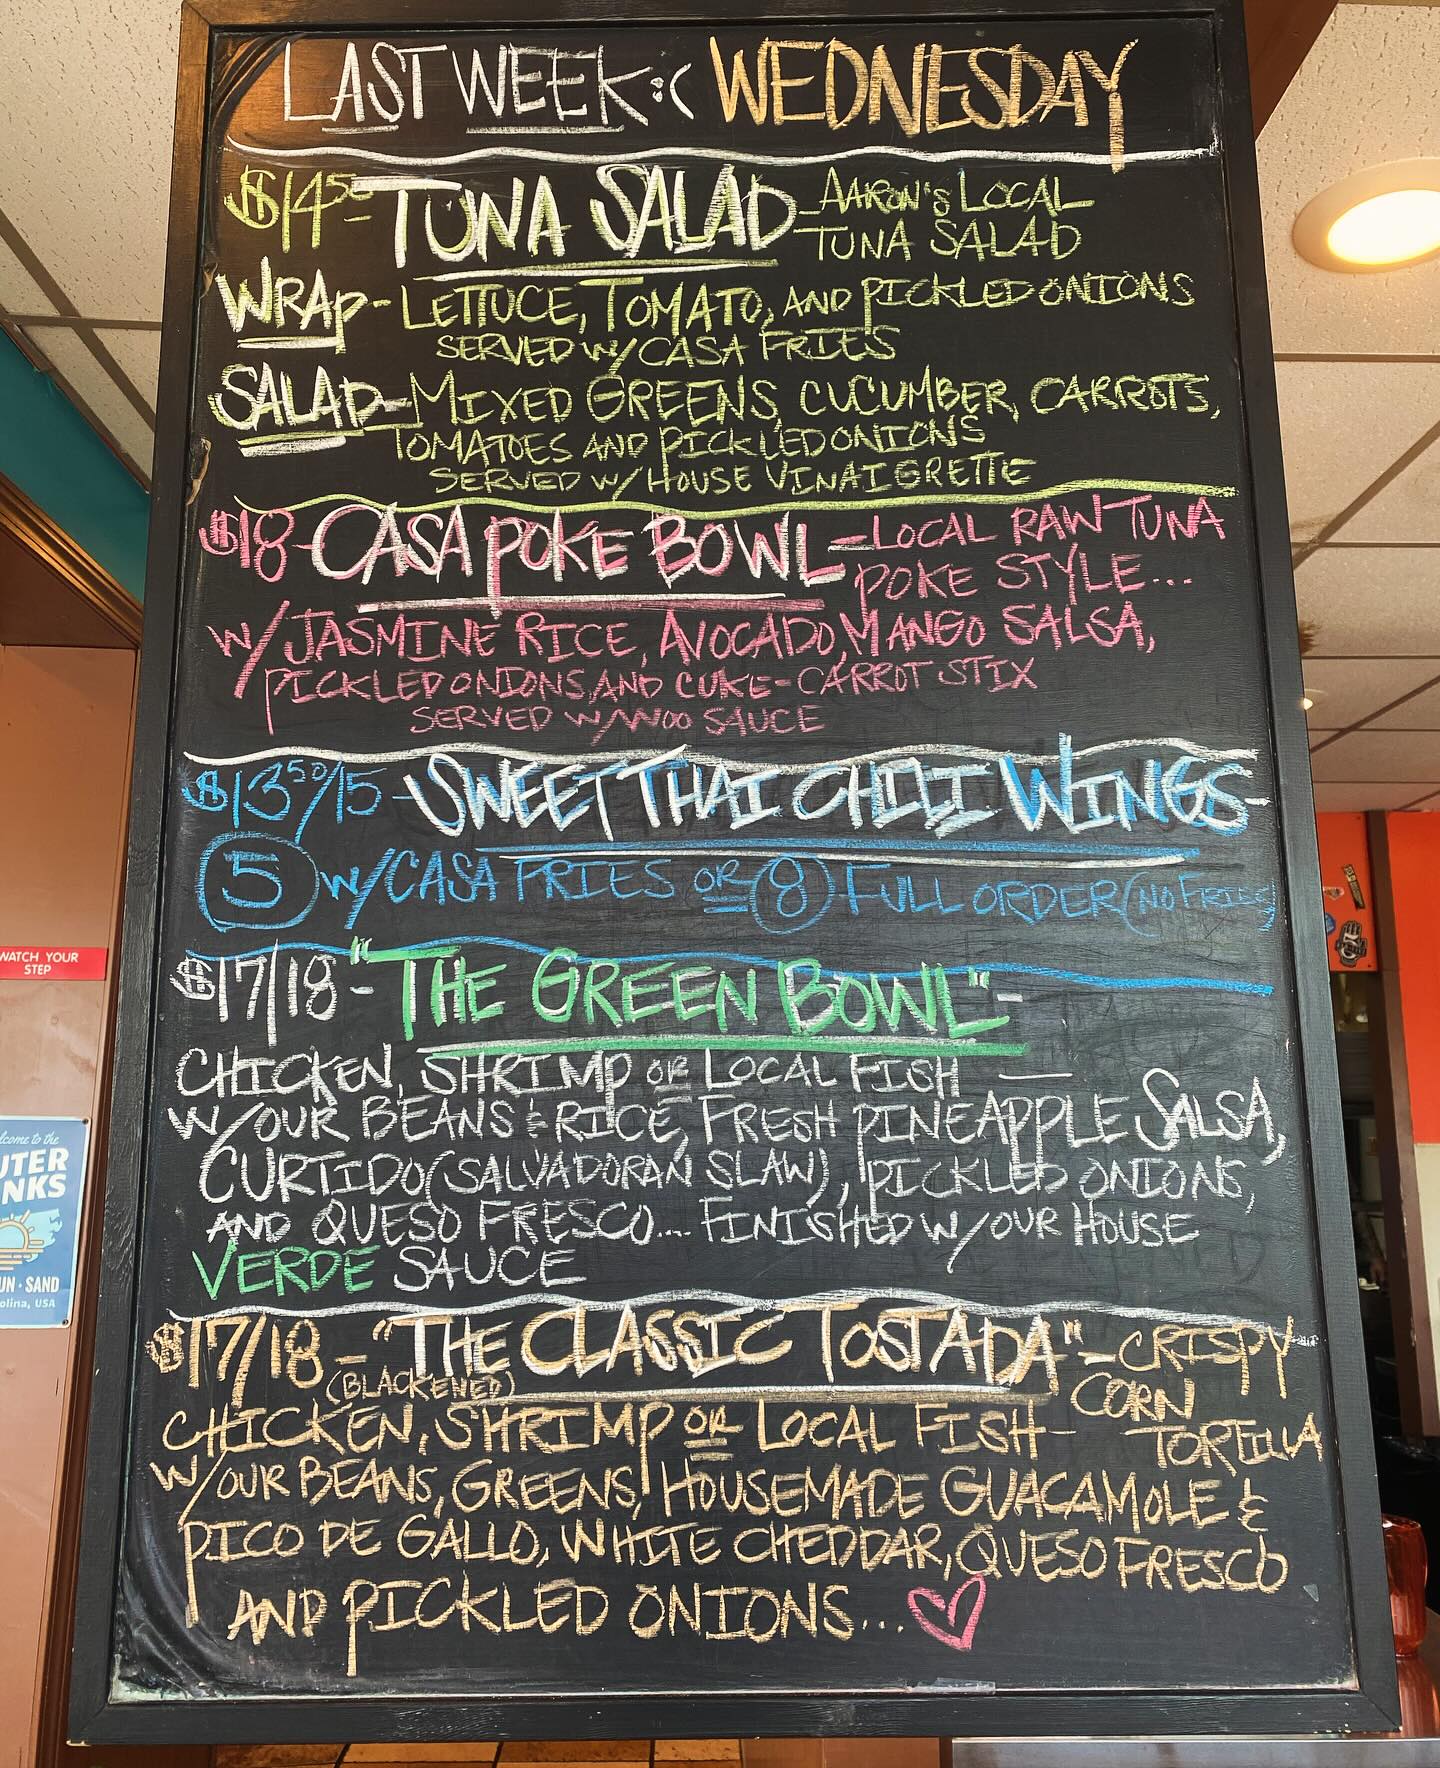 LAST WEEK :( WEDNESDAY
$14.50 TUNA SALAD - AARON'S LOCAL
TUNA SALAD
WRAP - LETTUCE, TOMATO, AND PICKLED ONIONS
SERVED W/ CASA FRIES
SALAD - MIXED GREENS, CUCUMBER, CARROTS,
TOMATOES AND PICKLED ONIONS
SERVED W/ HOUSE VINAIGRETTE
$18 - CASA POKE BOWL - LOCAL RAW TUNA
POKE STYLE...
W/ JASMINE RICE, AVOCADO, MANGO SALSA,
PICKLED ONIONS, AND CUKE-CARROT STIX
SERVED W/ WOO SAUCE
$13.50/15 - SWEET THAI CHILI WINGS -
5 W/ CASA FRIES OR 8 FULL ORDER (NO FRIES)
$17/18 - "THE GREEN BOWL" -
CHICKEN, SHRIMP OR LOCAL FISH
W/ OUR BEANS & RICE, FRESH PINEAPPLE SALSA,
CURTIDO (SALVADORAN SLAW), PICKLED ONIONS,
AND QUESO FRESCO... FINISHED W/ OUR HOUSE
VERDE SAUCE
$17/18 - "THE CLASSIC TOSTADA" - CRISPY
CORN
TORTILLA
(BLACKENED)
CHICKEN, SHRIMP OR LOCAL FISH -
W/ OUR BEANS, GREENS, HOUSEMADE GUACAMOLE &
PICO DE GALLO, WHITE CHEDDAR, QUESO FRESCO
AND PICKLED ONIONS...
WATCH YOUR
STEP